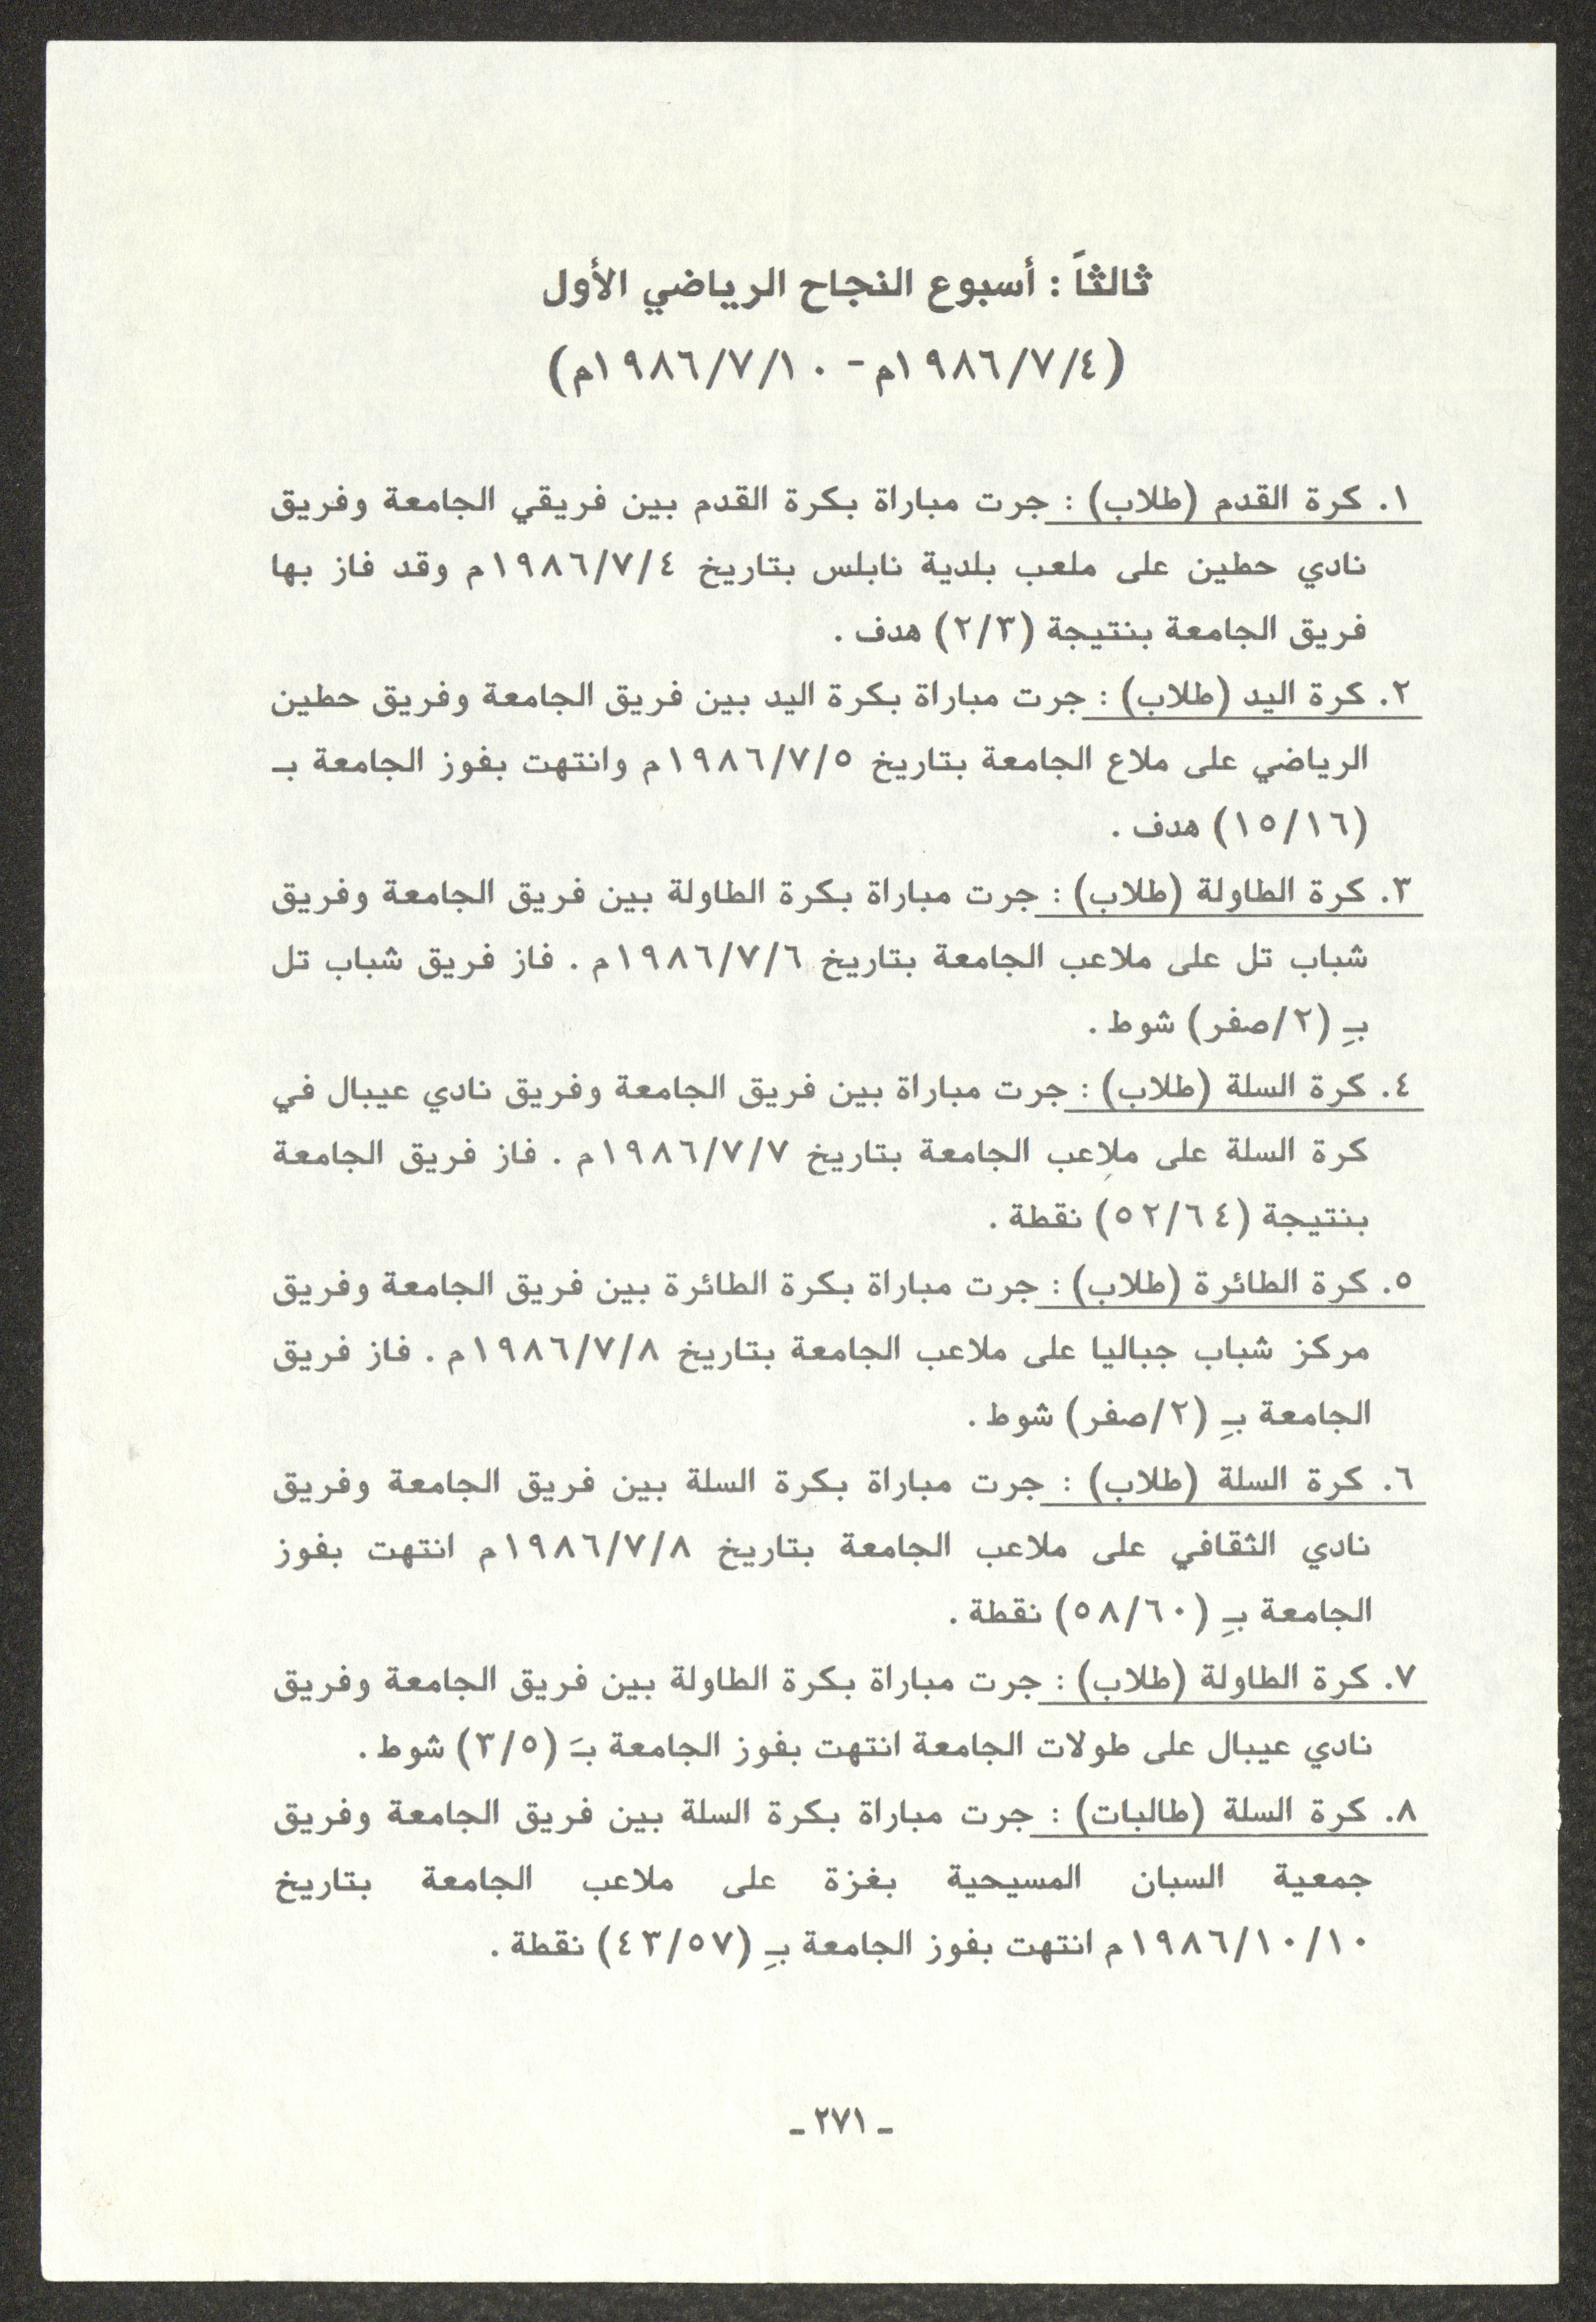 ثالثاً : أسبوع النجاح الرياضي الأول
(١٩٨٦/٧/٤م - ١٩٨٦/٧/١٠م)
١. كرة القدم (طلاب) : جرت مباراة بكرة القدم بين فريقي الجامعة وفريق
نادي حطين على ملعب بلدية نابلس بتاريخ ١٩٨٦/٧/٤م وقد فاز بها
فريق الجامعة بنتيجة (٢/٣) هدف .
٢. كرة اليد (طلاب) : جرت مباراة بكرة اليد بين فريق الجامعة وفريق حطين
الرياضي على ملاع الجامعة بتاريخ ١٩٨٦/٧/٥م وانتهت بفوز الجامعة بـ
(١٥/١٦) هدف .
٣. كرة الطاولة (طلاب) : جرت مباراة بكرة الطاولة بين فريق الجامعة وفريق
شباب تل على ملاعب الجامعة بتاريخ ١٩٨٦/٧/٦م . فاز فريق شباب تل
بـِ (٢/صفر) شوط .
٤. كرة السلة (طلاب) : جرت مباراة بين فريق الجامعة وفريق نادي عيبال في
كرة السلة على ملاِعب الجامعة بتاريخ ١٩٨٦/٧/٧م . فاز فريق الجامعة
بنتيجة (٥٢/٦٤) نقطة .
٥. كرة الطائرة (طلاب) : جرت مباراة بكرة الطائرة بين فريق الجامعة وفريق
مركز شباب جباليا على ملاعب الجامعة بتاريخ ١٩٨٦/٧/٨م . فاز فريق
الجامعة بـِ (٢/صفر) شوط .
٦. كرة السلة (طلاب) : جرت مباراة بكرة السلة بين فريق الجامعة وفريق
نادي الثقافي على ملاعب الجامعة بتاريخ ١٩٨٦/٧/٨م انتهت بفوز
الجامعة بـِ (٥٨/٦٠) نقطة .
٧. كرة الطاولة (طلاب) : جرت مباراة بكرة الطاولة بين فريق الجامعة وفريق
نادي عيبال على طولات الجامعة انتهت بفوز الجامعة بـَ (٣/٥) شوط .
٨. كرة السلة (طالبات) : جرت مباراة بكرة السلة بين فريق الجامعة وفريق
جمعية السبان المسيحية بغزة على ملاعب الجامعة بتاريخ
١٩٨٦/١٠/١٠م انتهت بفوز الجامعة بـِ (٤٣/٥٧) نقطة .
ـ ٢٧١ ـ